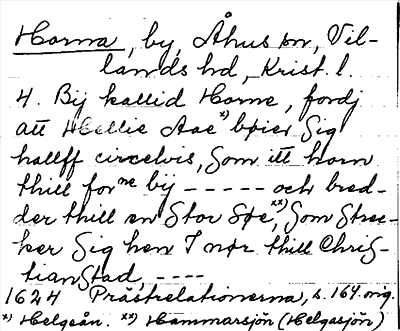 Horna, by, Åhus sn, Vil-
lands hd, Krist. l.
4. Bÿ kallid Horne, fordj
att Hellie Aae*) bøier Sig
hallff circelvis, Som itt horn
thill forne bij - - - - - och bred-
der thill en Stor Søe**), Som Stree-
ker Sig hen I nør thill Chris-
tianstad, - - - -
1624 Prästrelationerna, s. 164. orig.
*) Helgeån. **) Hammarsjön (Helgasjön)